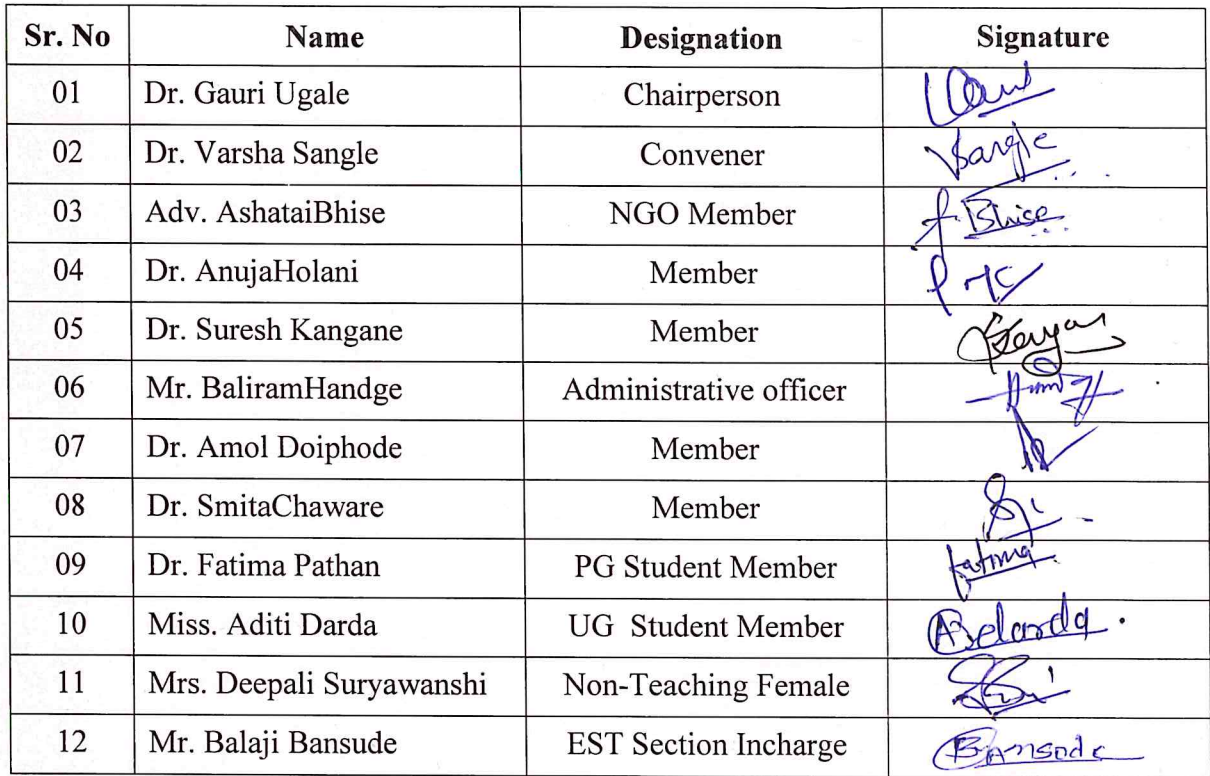 Sr. No Name Designation Signature
01 Dr. Gauri Ugale Chairperson
02 Dr. Varsha Sangle Convener Sangle
03 Adv. AshataiBhise NGO Member Bhise
04 Dr. AnujaHolani Member
05 Dr. Suresh Kangane Member
06 Mr. BaliramHandge Administrative officer
07 Dr. Amol Doiphode Member
08 Dr. SmitaChaware Member
09 Dr. Fatima Pathan PG Student Member fatima
10 Miss. Aditi Darda UG Student Member
11 Mrs. Deepali Suryawanshi Non-Teaching Female
12 Mr. Balaji Bansude EST Section Incharge Bansode